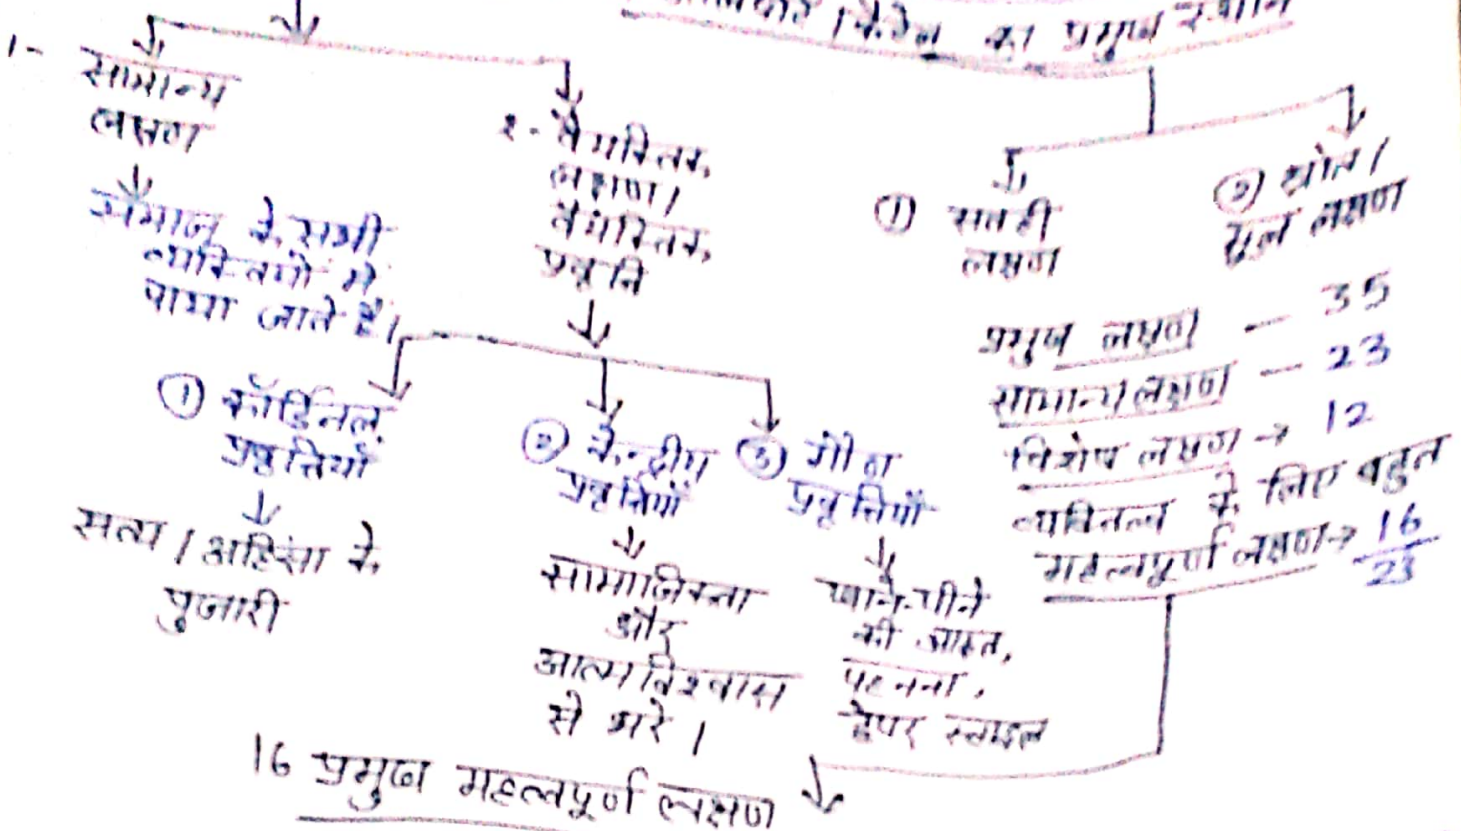 का प्रमुख
1- सामान्य
लक्षण
समाज के सभी
व्यक्तियों में
पाया जाते है।
2- वैयक्तिक
लक्षण /
वैयक्तिक
प्रवृति
① कॉर्डिनल
प्रवृत्तियाँ
सत्य / अहिंसा के
पुजारी
② केन्द्रीय
प्रवृत्तियाँ
सामाजिकता
और
आत्मविश्वास
से भरे।
③ गौण
प्रवृत्तियाँ
खाने-पीने
की आदत,
पहनना,
हेयर स्टाइल
① सतही
लक्षण
② स्रोत /
मूल लक्षण
प्रमुख लक्षण — 35
सामान्य लक्षण — 23
विशेष लक्षण → 12
व्यक्तित्व के लिए बहुत
महत्वपूर्ण लक्षण → 16
23
16 प्रमुख महत्वपूर्ण लक्षण